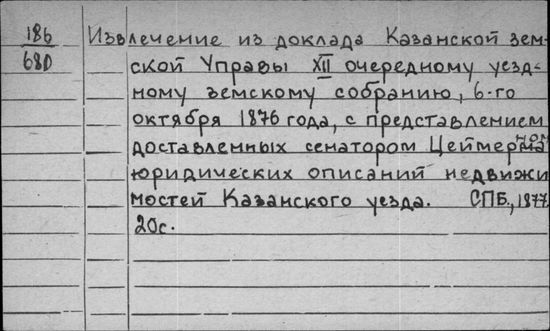 186 Извлечение из доклада Казанской зем-
680 ской Управы XII очередному уезд-
ному земскому собранию, 6-го
октября 1876 года, с представлением
доставленных сенатором Цеймерном
юридических описаний недвижи
мостей Казанского уезда. СПБ., 1877.
20с.